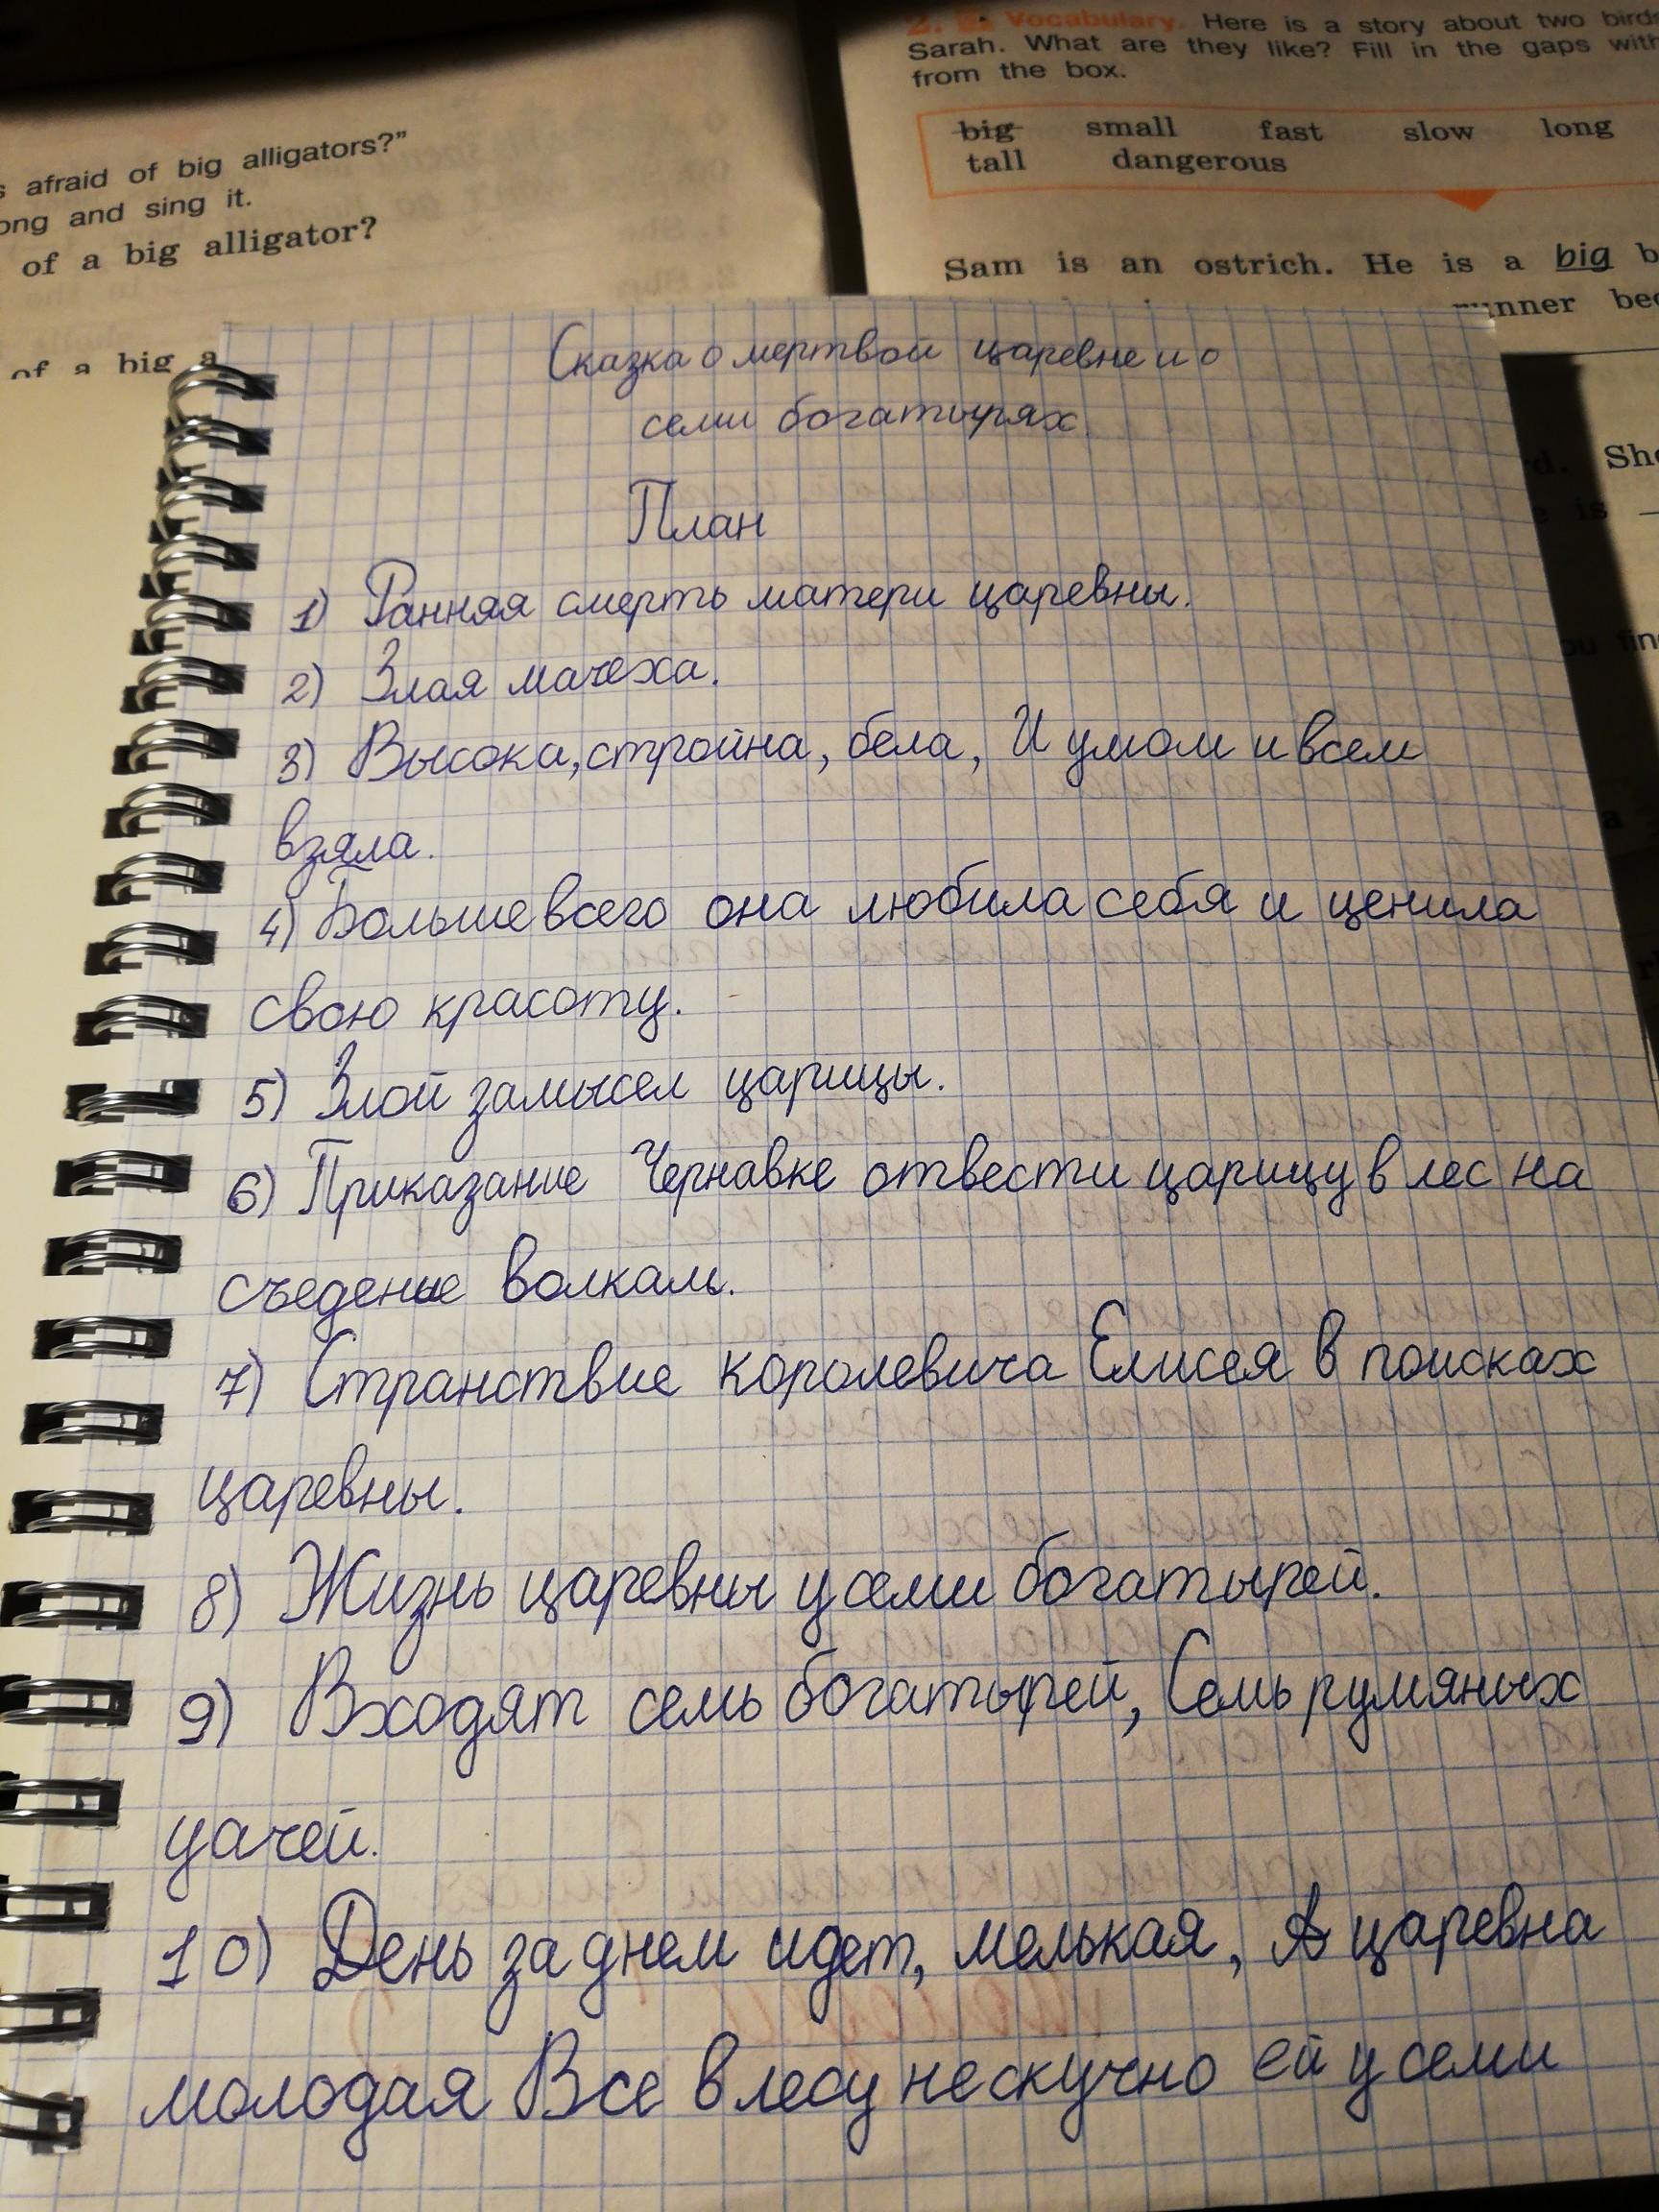 s afraid of big alligators?"
ong and sing it.
of a big alligator?
of a big a
2. Vocabulary. Here is a story about two birds
Sarah. What are they like? Fill in the gaps with
from the box.
big small fast slow long
tall dangerous
Sam is an ostrich. He is a big b
runner bec
d. She
e is
ou fin
Сказка о мертвой царевне и о
семи богатырях
План
1) Ранняя смерть матери царевны.
2) Злая мачеха.
3) Высока, стройна, бела, И умом и всем
взяла.
4) Больше всего она любила себя и ценила
свою красоту.
5) Злой замысел царицы.
6) Приказание Чернавке отвести царицу в лес на
съеденье волкам.
7) Странствие королевича Елисея в поисках
царевны.
8) Жизнь царевны у семи богатырей.
9) Входят семь богатырей, Семь румяных
уачей.
10) День за днем идет, мелькая, А царевна
молодая Все в лесу не скучно ей у семи